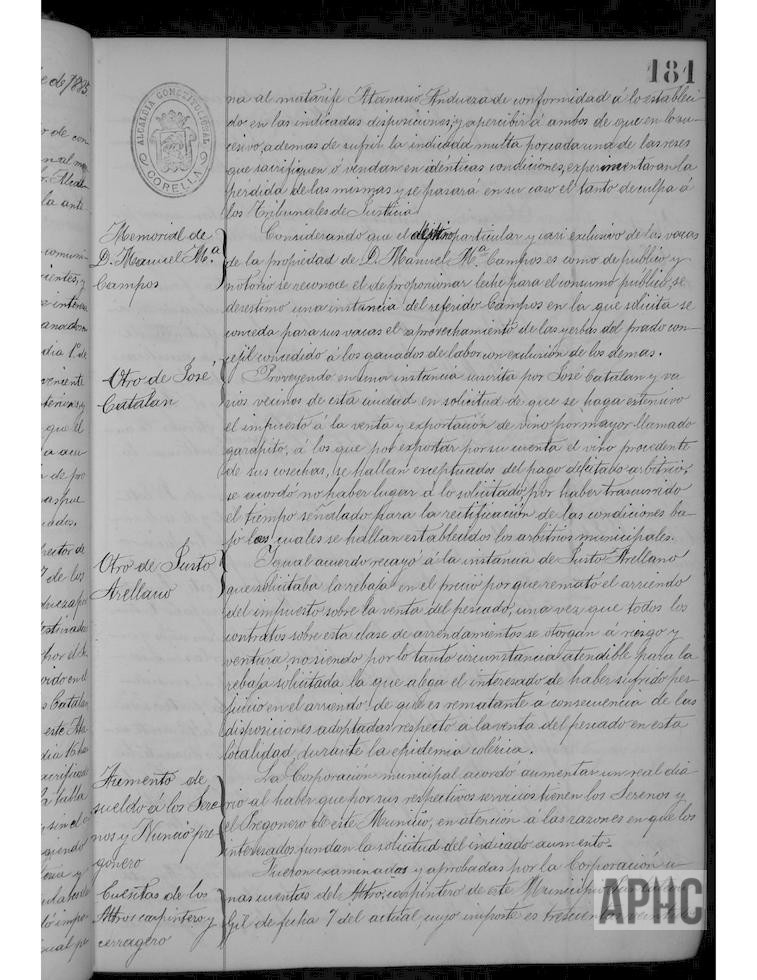 181
ALCALDIA CONSTITUCIONAL
CORELLA
na al matarife Atanasio Andueza de conformidad á lo estableci-
do en las indicadas disposiciones, y apercibirá ambos de que en lo su-
cesivo, ademas de sufrir la indicada multa por cada una de las reses
que sacrifiquen ó vendan en identicas condiciones, experimentaran la
perdida de las mismas y se pasará en su caso el tanto de culpa á
los Tribunales de Justicia.
Memorial de
D. Manuel M.ª
Campos
Considerando que el destino particular y casi exclusivo de las vacas
de la propiedad de D. Manuel M.ª Campos es como de publico y
notorio se reconoce el de proporcionar leche para el consumo publico, se
desestimo una instancia del referido Campos en la que solicita se
conceda para sus vacas el aprovechamiento de las yerbas del prado con-
cejil concedido á los ganados de labor con exclusión de los demas.
Otro de José
Catalan
Proveyendo en una instancia suscrita por José Catalan y va-
rios vecinos de esta ciudad en solicitud de que se haga estensivo
el impuesto á la venta y exportación de vino por mayor llamado
garapito, á los que por exportar por su cuenta el vino procedente
de sus cosechas, se hallan exceptuados del pago de citado arbitrio,
se acordó no haber lugar á lo solicitado, por haber trascurrido
el tiempo señalado para la rectificación de las condiciones ba-
jo las cuales se hallan establecidos los arbitrios municipales.
Otro de Justo
Arellano
Igual acuerdo recayó á la instancia de Justo Arellano
que solicitaba la rebaja en el precio porque remató el arriendo
del impuesto sobre la venta del pescado, una vez que todos los
contratos sobre esta clase de arrendamientos se otorgan á riesgo y
ventura no siendo por lo tanto circunstancia atendible para la
rebaja solicitada la que alega el interesado de haber sufrido per-
juicio en el arriendo de que es rematante á consecuencia de las
disposiciones adoptadas respecto á la venta del pescado en esta
localidad, durante la epidemia colérica.
Aumento de
sueldo á los Sere-
nos y Nuncio pre-
gonero
La Corporación municipal acordó aumentar un real dia-
rio al haber que por sus respectivos servicios tienen los Serenos y
el Pregonero de este Municipio, en atención á las razones en que los
interesados fundan la solicitud del indicado aumento.
Cuentas de los
Mtros carpintero y
cerragero
Fueron examinadas y aprobadas por la Corporación u-
nas cuentas del Mtro. carpintero de este Municipio
Gil de fecha 7 del actual, cuyo importe es trescientos veinte
APHC